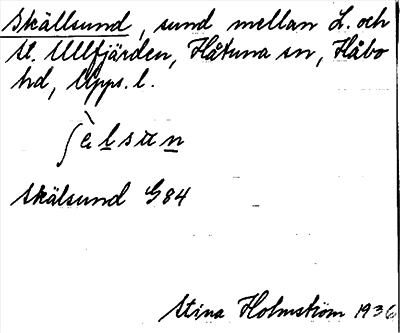 Skällsund, sund mellan L. och
St. Ullfjärden, Håtuna sn, Håbo
hd, Upps. l.
Skälsund G84
Stina Holmström 1936